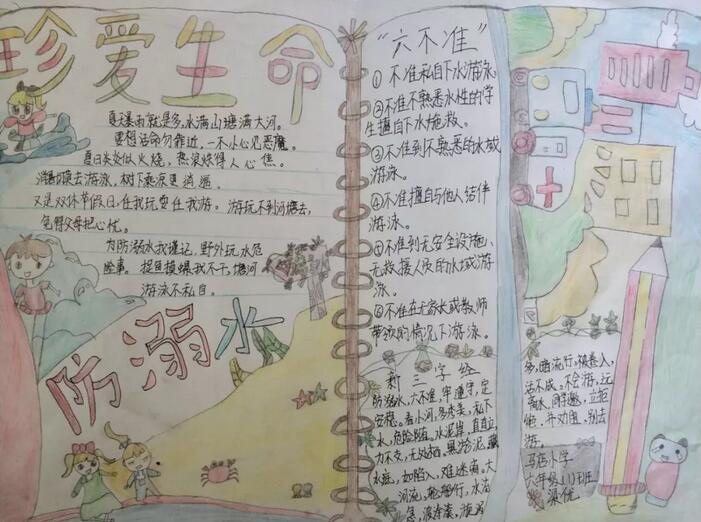 珍爱生命
夏天暴雨就是多,水满山塘满大河。
要想活命勿靠近,一不小心见恶魔。
夏日炎炎似火烧,热浪烤得人心焦。
去游泳,树下乘凉更逍遥。
又是双休节假日,任我玩耍任我游。游玩不到河塘去,
免得父母把心忧。
为防溺水我谨记,野外玩水危
险事。捉鱼摸螺我不干,塘河
游泳不私自。
防溺水
“六不准”
①不准私自下水游泳
②不准不熟悉水性的学
生擅自下水施救。
③不准到不熟悉的水域
游泳。
④不准擅自与他人结伴
游泳。
⑤不准到无安全设施、
无救援人员的水域游
泳。
⑥不准在无家长或教师
带领的情况下游泳。
新三字经
防溺水,六不准,牢遵守,定
安稳。看小河,多秀美,私下
水,危险随。水泥岸,直直立,
力不支,无处。淤泥,藏
水底,如陷入,难逃离。大
河流,船舶行,水湍
急,波连
多,暗流行,被卷入,
活不成。不会游,远
离水,同学邀,立拒
绝,并劝阻,别去
游。
马店小学
六年级(1)班
梁优